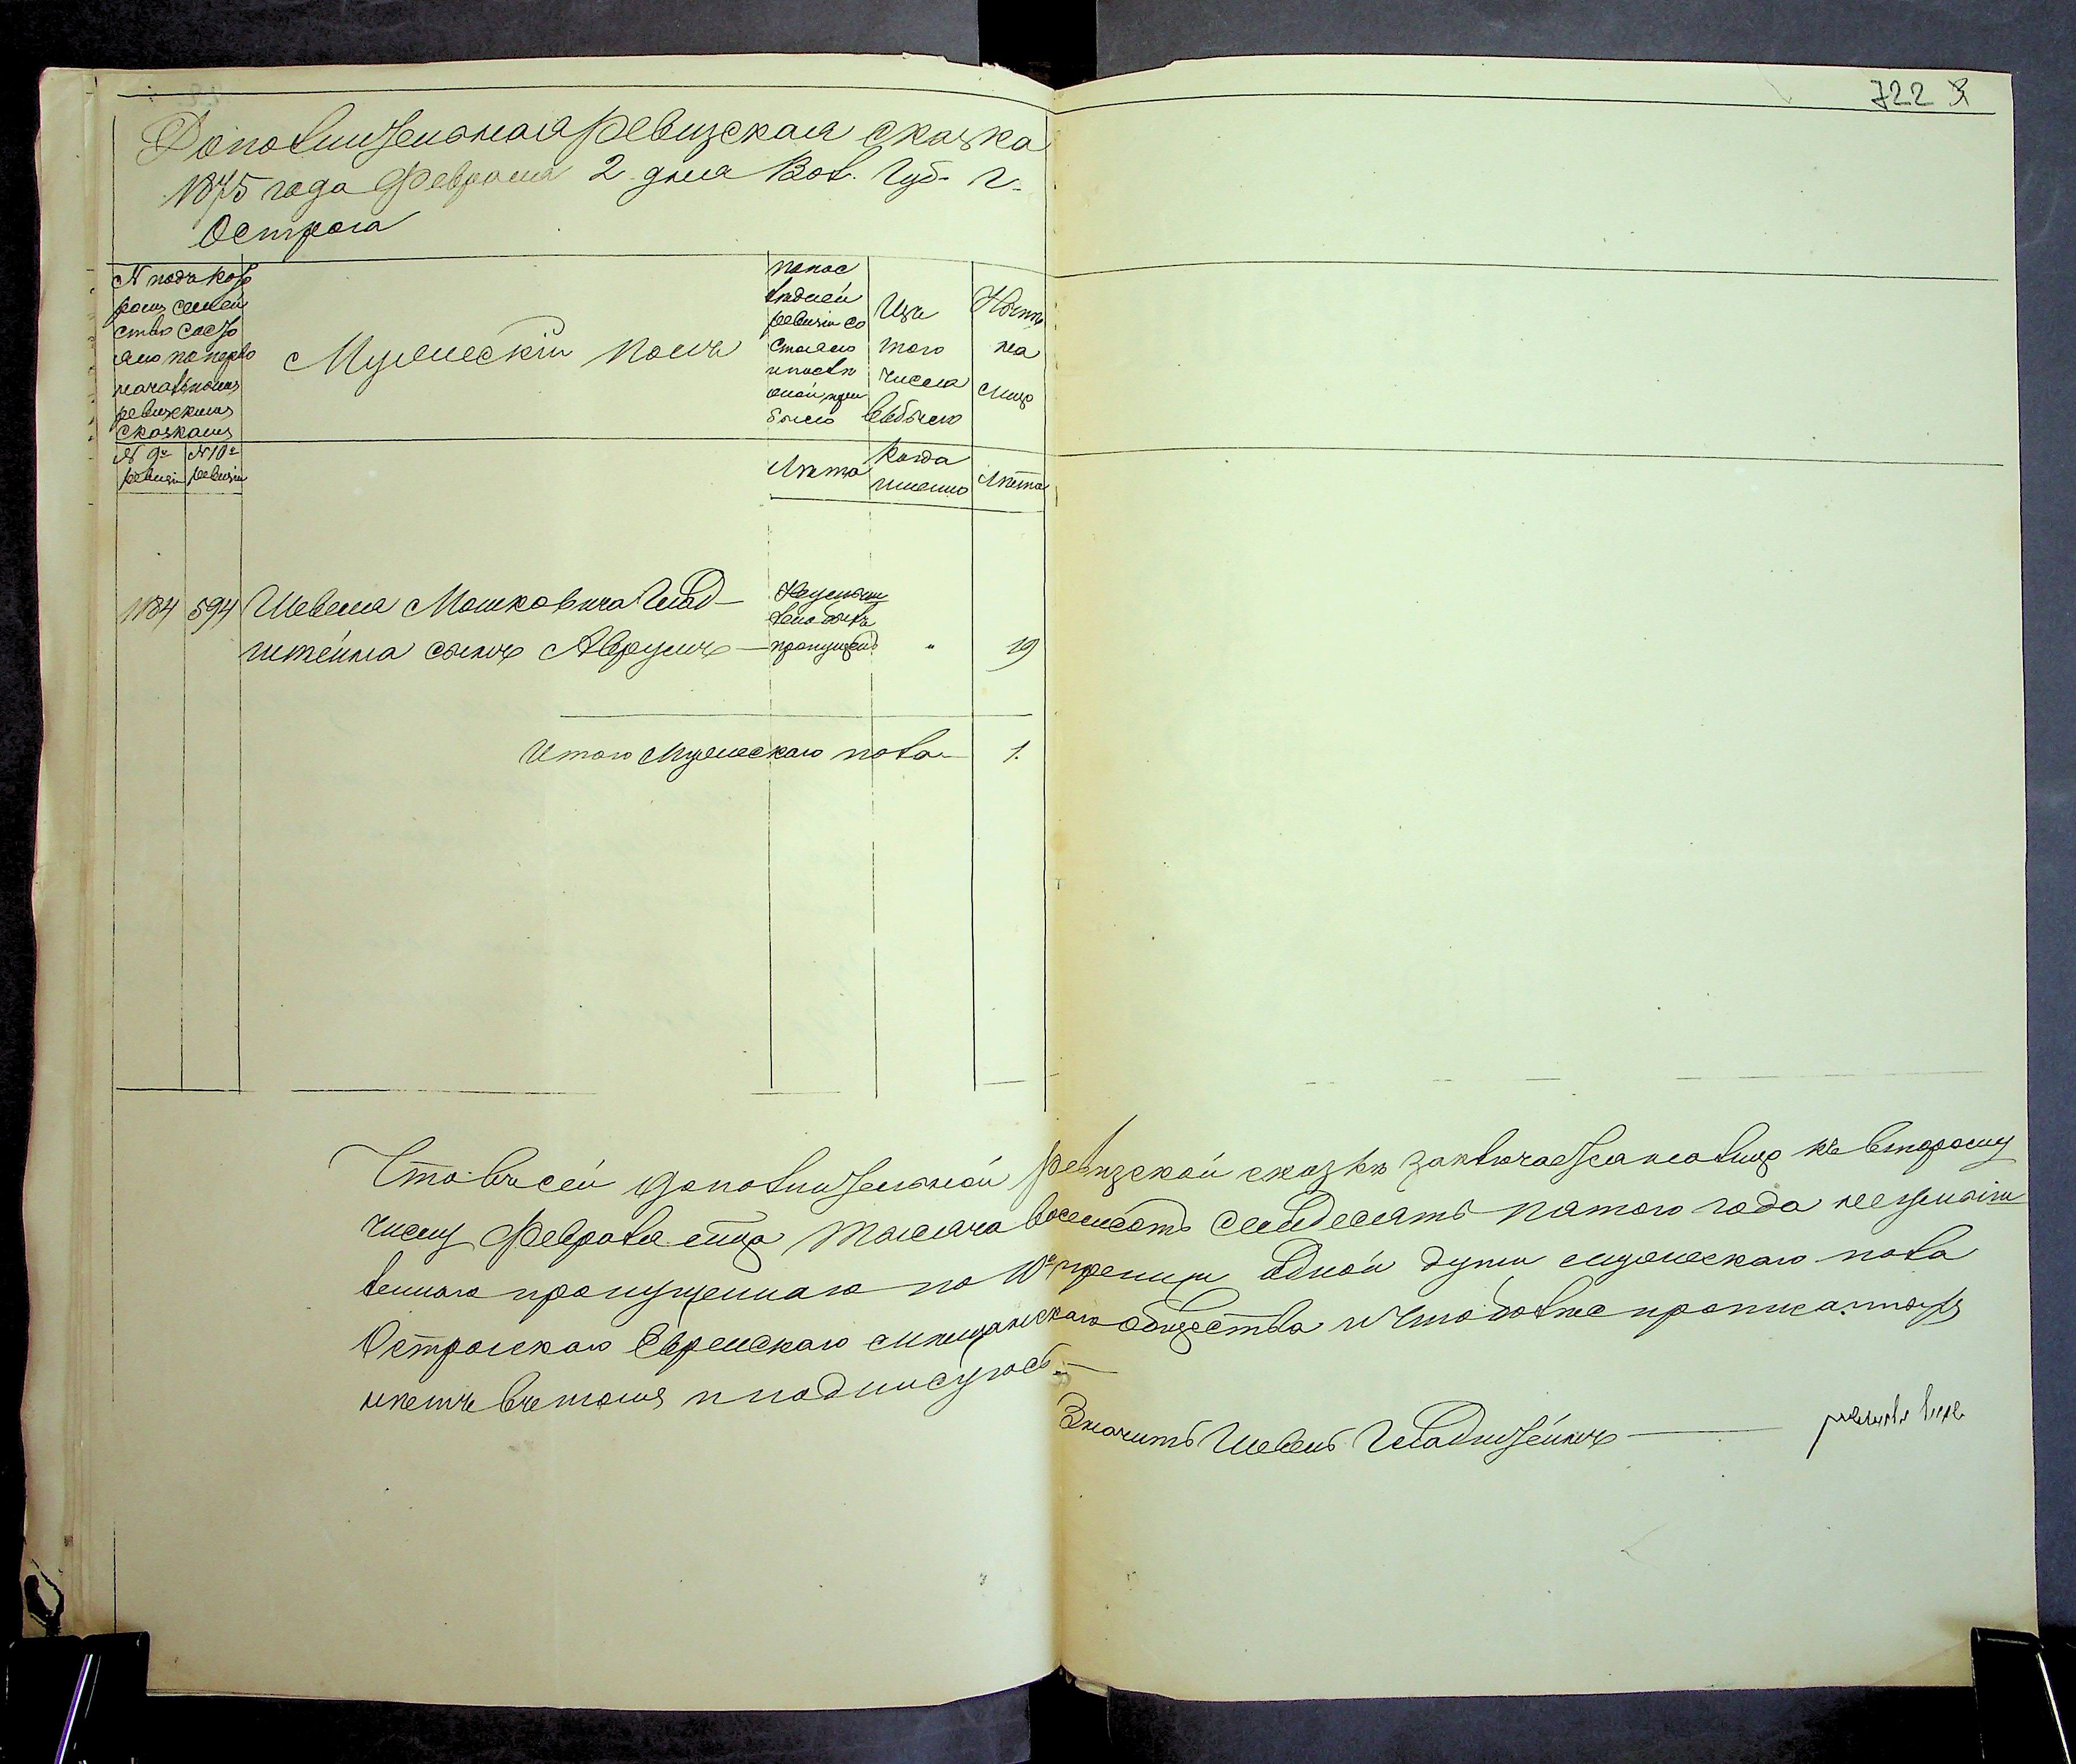 722
Дополнительная ревизская сказка
1875 года Февраля 2 дня Вол. Губ. г.
Острога
№ подъ кото
рымъ семей
ство состо
яло по перво
начальнымъ
ревизскимъ
сказкамъ
№ 9й ревизіи
№ 10й ревизіи
Мужескій полъ
По пос
лѣдней
ревизіи со
стояло
и послѣ
оной при
было
Изъ
того
числа
выбыло
Нынѣ
на
лицо
Лѣта
Когда
именно
Лѣта
1184 594 Шевеля Мошковича Глад-
штейна сынъ Аврумъ —
Неумыш
ленно былъ
пропущенъ
" 19
Итого мужескаго пола — 1.
Что въ сей дополнительной ревизской сказкѣ заключается на лицо къ второму
числу Февраля мца тысяча восемьсотъ семьдесятъ пятого года неумыш
ленного пропущенного по 10й ревизіи одной души мужескаго пола
Острогскаго Еврейскаго мѣщанскаго общества и что болѣе прописанныхъ
нѣтъ въ томъ и подписуюсь. —
Значитъ Шевель Гладштейнъ —